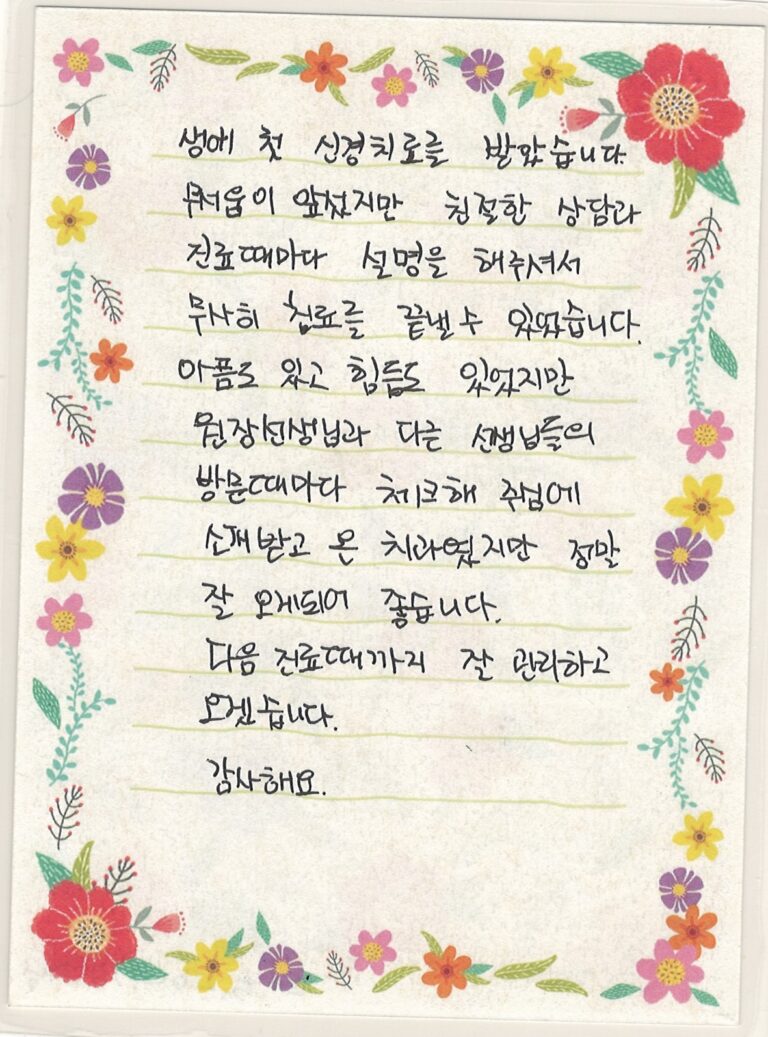 생애 첫 신경치료를 받았습니다.
무서움이 앞섰지만 친절한 상담과
진료때마다 설명을 해주셔서
무사히 치료를 끝낼 수 있었습니다.
아픔도 있고 힘듦도 있었지만
원장선생님과 다른 선생님들의
방문때마다 체크해 주심에
소개받고 온 치과였지만 정말
잘 오게되어 좋습니다.
다음 진료때까지 잘 관리하고
오겠습니다.
감사해요.